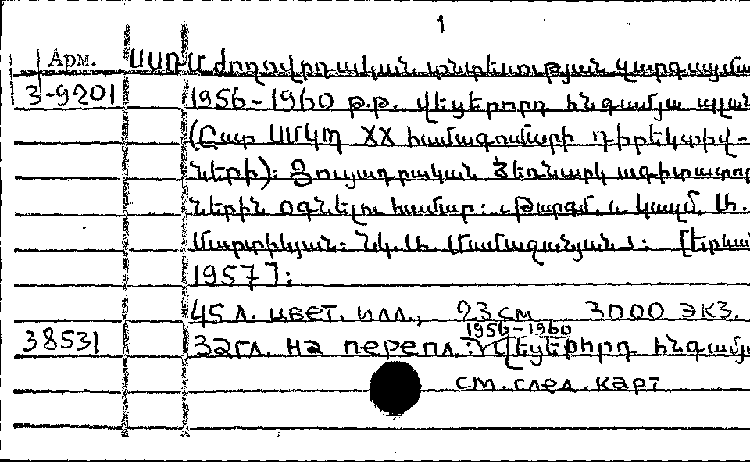 1
Арм. ՍՍՌՄ ժողովրդական տնտեսության զարգացմա
3-9201 1956-1960 թ.թ. վեցերորդ հնգամյա պլան
(Ըստ ՍՄԿՊ XX համագումարի դիրեկտիվ-
ների): Ցուցադրական ձեռնարկ ագիտատոր
ներին օգնելու համար: Թարգմ. և կազմ. Ա.
Մարտիկյան: Նկ. Ա. Մամաջանյան: [Երևան
1957]:
45 л. цвет. илл., 23 см 3000 экз.
1956-1960
38531 Загл. на перепл.: Վեցերորդ հնգամյ
см. след. карт